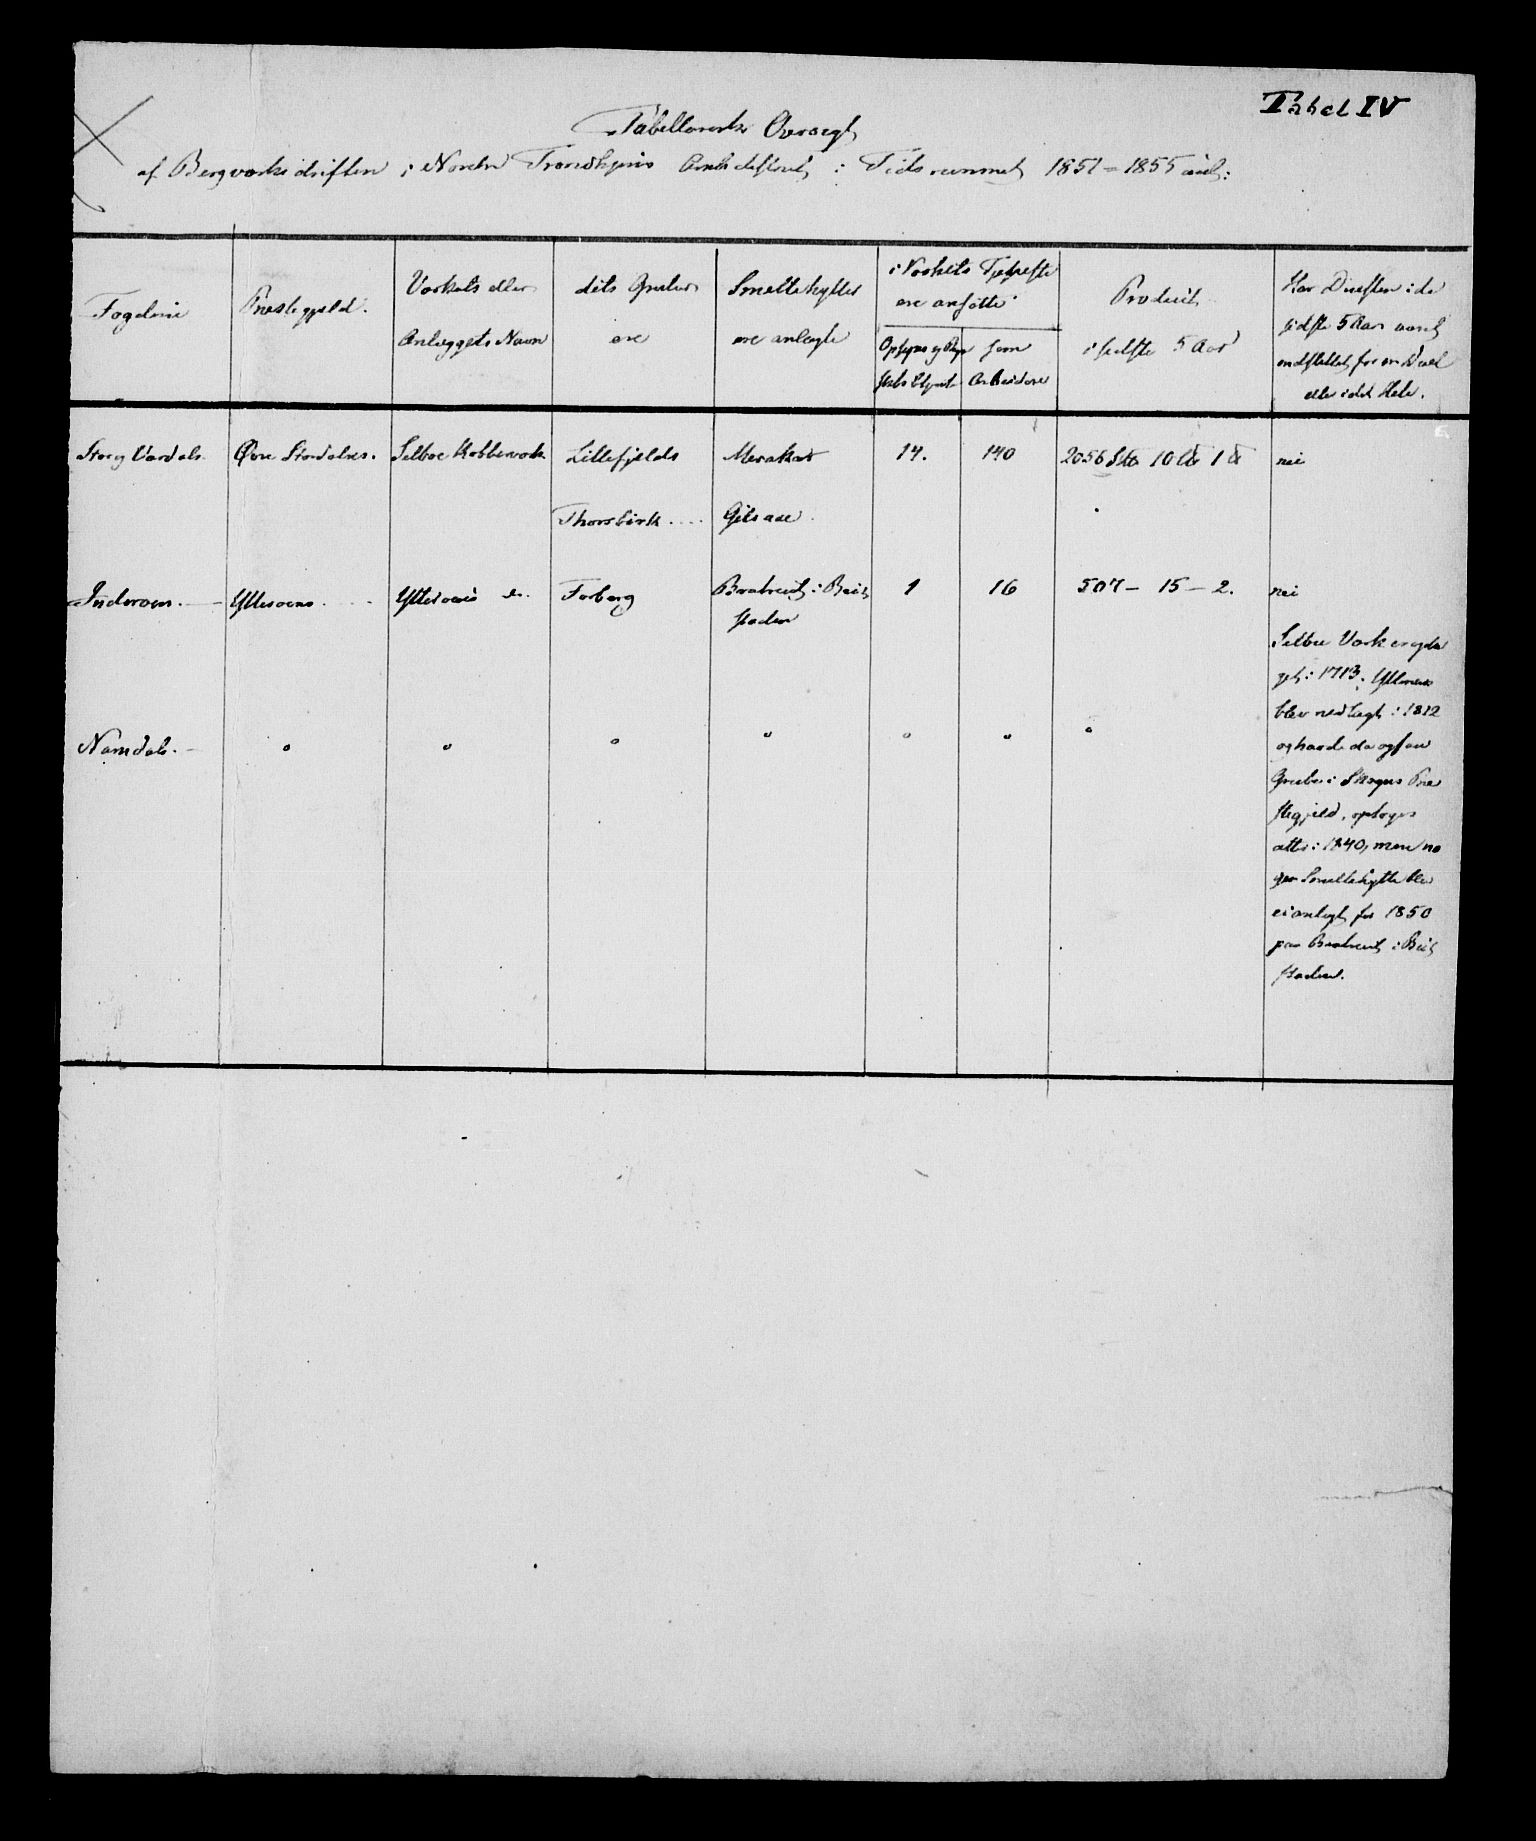 Tabel IV
Tabellarisk Oversigt
af Bergværksdriften i Nordre Trondhjems Amtsdistrict i Tidsrummet 1851 = 1855 incl:
Fogderie
Præstegjeld.
Værkets eller
Anlæggets Navn
dets Gruber
ere
Smeltehytter
ere anlagte
i Værkets Tjeneste
ere ansatte
Opsyns og
som
Arbeidere
Product
i sidste 5 Aar
Har Driften i de
sidste 5 Aar været
indstillet for en Deel
eller i det Hele.
Stør og Værdals Øvre Størdalens. Selboe Kobberværk Lillefjelds Meraker 14. 140 2056 S℔ 10 L℔ 1 ℔ nei
Thorsbirk .... Gilsaae
Inderøens. — Ytterøens .... Ytterøens do. Forberg i Beit 1 16 507 — 15 — 2. nei
staden
Selbu Værk er opta
get i 1713. Ytterøens
blev nedlagt i 1812
og havde da ogsaa
Gruber i Skognes Præ
stegjeld, optoges
atter i 1840, men no
gen Smeltehytte blev
ei anlagt før 1850
paa i Beit
staden.
Namdals. — " " " " " " "